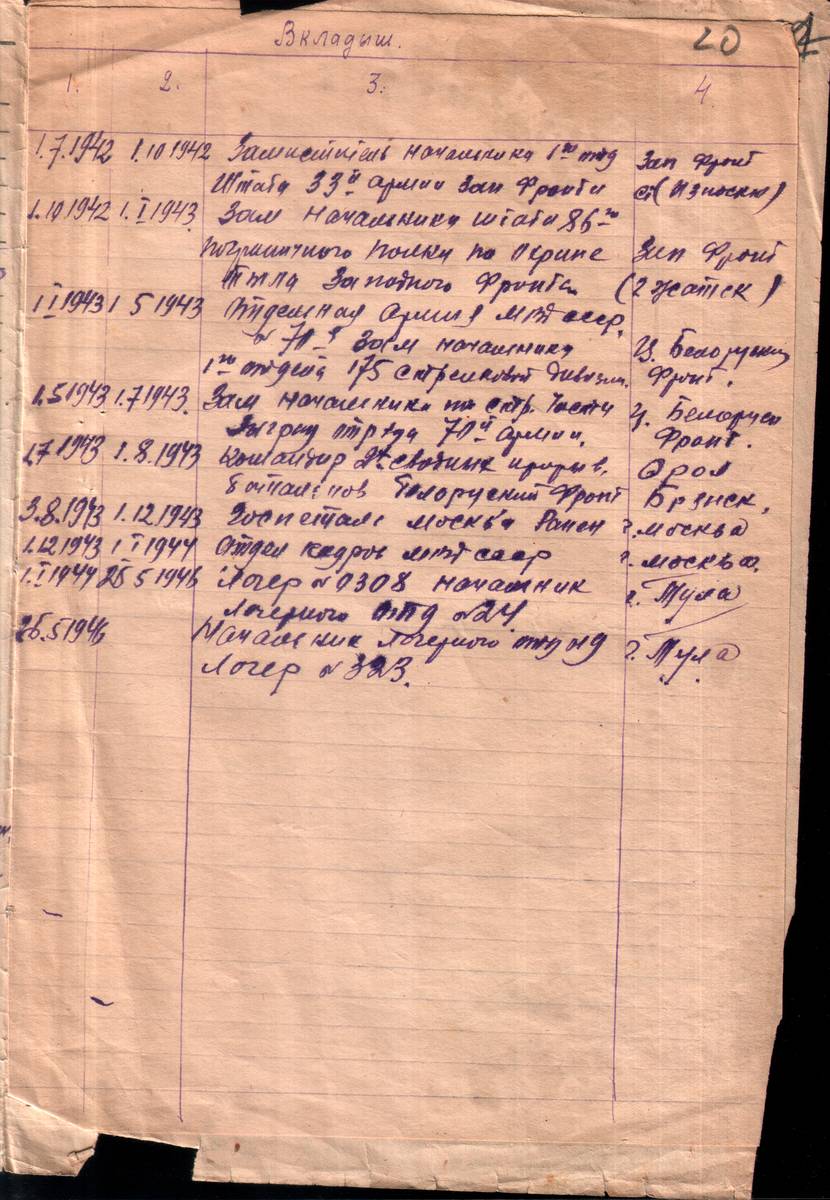 Вкладыш. 20
1. 2. 3. 4.
1.7.1942 1.10 1942 Заместитель начальника 1го отд Зап Фронт
Штата 33й армии Зап Фронта ст(Износки)
1.10 1942 1.I 1943. Зам начальника штата 86го
пограничного полка по охране Зап Фронт
тыла Западного Фронта (г Жатск)
1 I 1943 1 5 1943 Отдельная Армия МВД ссср.
№ 70й Зам начальника Ц. Белоруский
1го отдела 175 стрелковой дивизии. Фронт.
1.5 1943 1.7 1943. Зам начальника по стр. части Ц. Белоруск
отряда 70й армии. Фронт.
1.7 1943 1.8.1943 Командир сводных прорыв. Орол
батальонов Белоруский Фронт Брянск,
3.8.1943 1.12 1943 Госпеталь Москва Ранен г. Москва
1.12 1943 1 I 1944 Отдел кадров МВД ссср г. Москва.
1.I 1944 25 5 1946 Лагер № 0308 начальник г. Тула
Лагерного отд №24
26.5 1946 Начальник Лагерного отд №9 г. Тула
Лагер № 323.